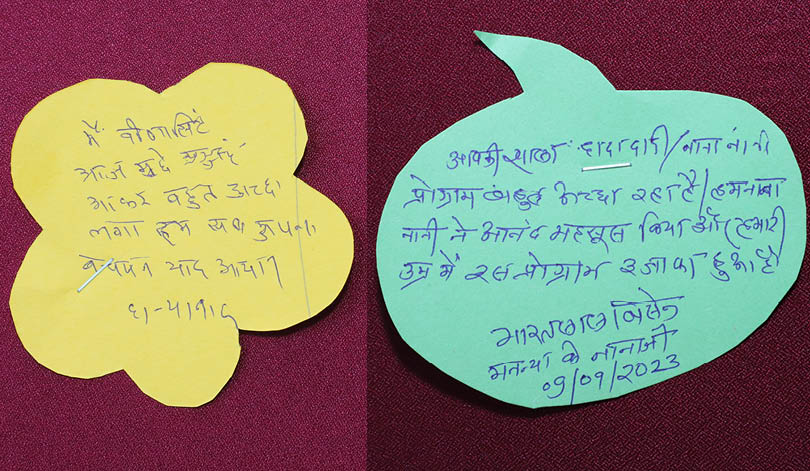 मैं वीणा सिंह
आज मुझे
आकर बहुत अच्छा
लगा हम सब
बचपन याद आया।
धन्यवाद
आपकी शाला दादा दादी/नाना नानी
प्रोग्राम बहुत अच्छा रहा है/हम नाना
नानी ने आनंद महसूस किया और हमारी
उम्र में इस प्रोग्राम इजाफा हुआ है
भारतलाल बिसेन
के नानाजी
09/09/2023